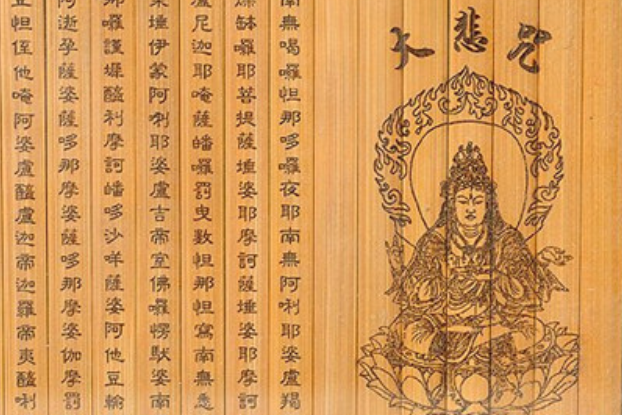 大悲咒
南無喝囉怛那哆囉夜耶南無阿唎耶婆盧羯
爍缽囉耶菩提薩埵婆耶摩訶薩埵婆耶摩訶
盧尼迦耶唵薩皤囉罰曳數怛那怛寫南無悉
埵伊蒙阿唎耶婆盧吉帝室佛囉愣馱婆南
那囉謹墀醯利摩訶皤哆沙咩薩婆阿他豆輸
阿逝孕薩婆薩哆那摩婆薩哆那摩婆伽摩罰
怛侄他唵阿婆盧醯盧迦帝迦羅帝夷醯唎